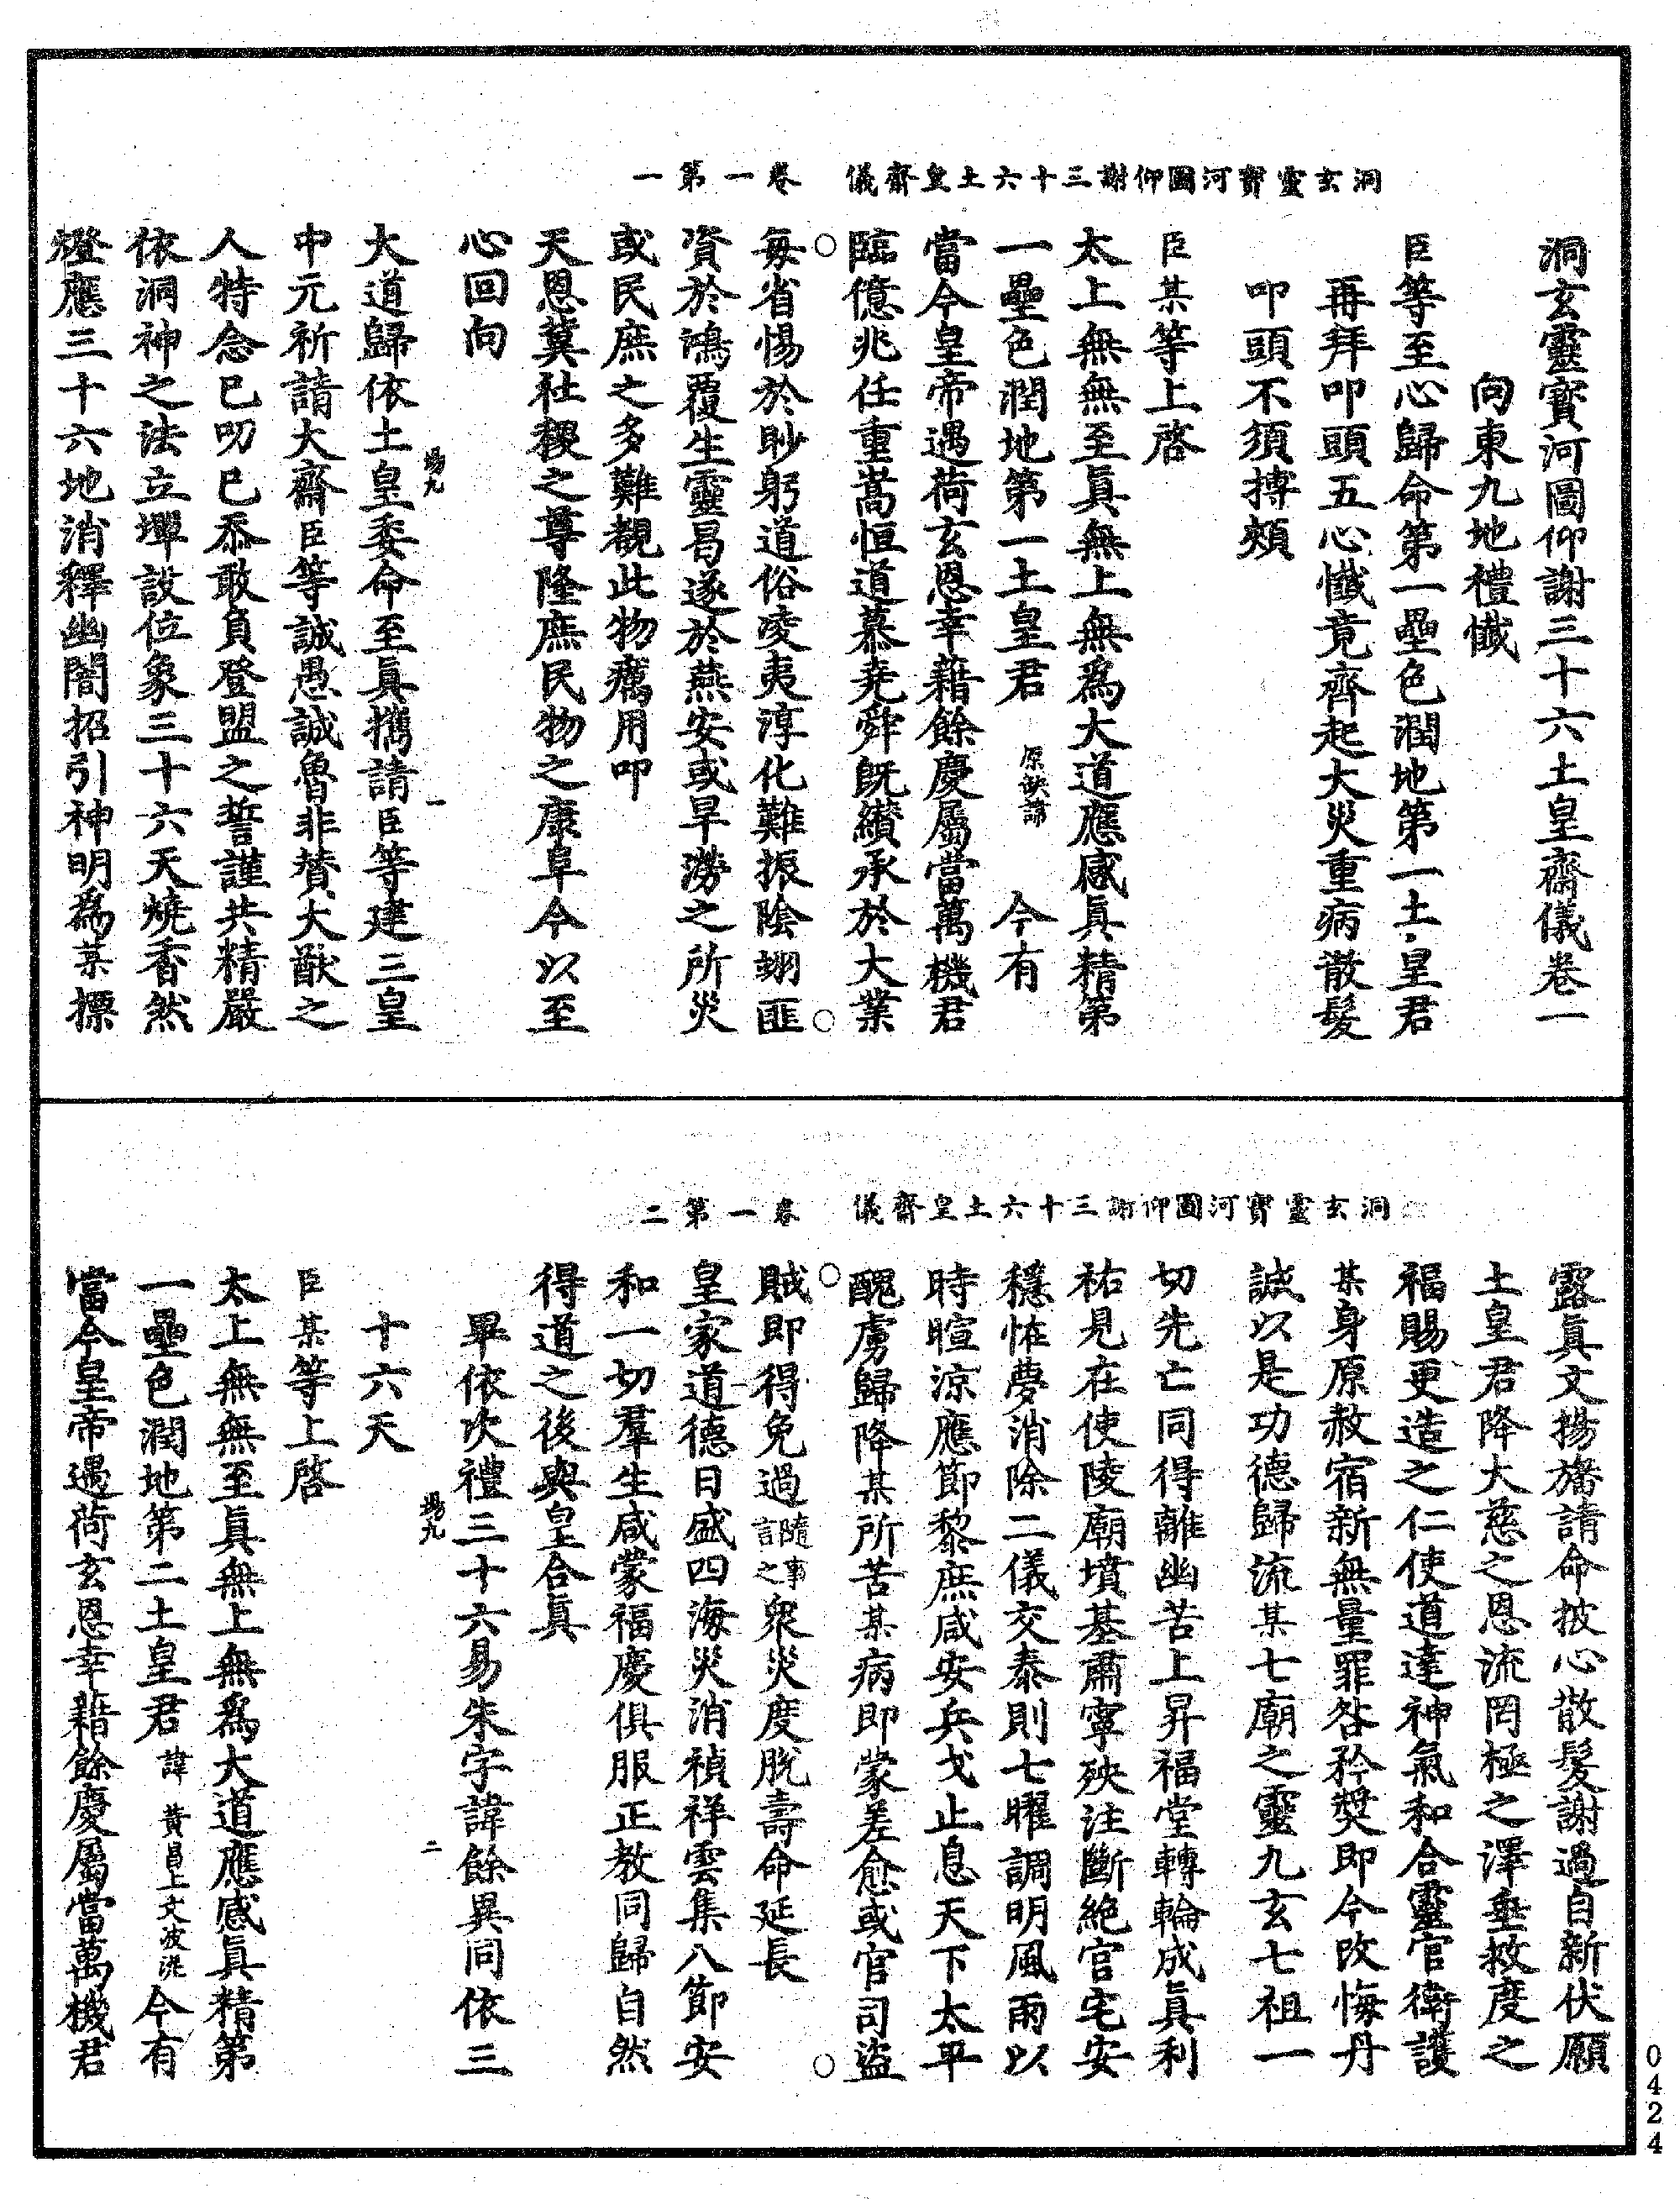 洞玄靈寶河圖仰謝三十六土皇齋儀　卷一第一
洞玄靈寶河圖仰謝三十六土皇齋儀卷一
向東九地禮懺
臣等至心歸命第一壘色潤地第一土皇君
再拜叩頭五心懺竟齊起大災重病散髮
叩頭不須搏頰
臣某等上啓
太上無無至眞無上無爲大道應感眞精第
一壘色潤地第一土皇君　原缺諱　今有
當今皇帝遇荷玄恩幸藉餘慶屬當萬機君
臨億兆任重嵩恒道慕堯舜旣纘承於大業
每省惕於眇躬道俗凌夷淳化難振陰翊匪
資於鴻覆生靈昌遂於燕安或旱澇之所災
或民庶之多難覩此物癘用叩
天恩冀社稷之尊隆庶民物之康阜今以至
心回向
大道歸依土皇委命至眞攜請臣等建三皇
中元祈請大齋臣等誠愚誠魯非贊大猷之
人特念已叨已忝敢負登盟之誓謹共精嚴
依洞神之法立壇設位象三十六天燒香然
燈應三十六地消釋幽闇招引神明爲某摽
場九　一
洞玄靈寶河圖仰謝三十六土皇齋儀　卷一第二
露眞文揚旛請命披心散髮謝過自新伏願
土皇君降大慈之恩流罔極之澤垂救度之
福賜更造之仁使道達神氣和合靈官衛護
某身原赦宿新無量罪咎矜獎即今改悔丹
誠以是功德歸流某七廟之靈九玄七祖一
切先亡同得離幽苦上昇福堂轉輪成眞利
祐見在使陵廟墳基肅寧殃注斷絕官宅安
穩怪夢消除二儀交泰則七曜調明風雨以
時暄涼應節黎庶咸安兵戈止息天下太平
醜虜歸降某所苦某病即蒙差愈或官司盜
賊即得免過隨事言之衆災度脫壽命延長
皇家道德日盛四海災消禎祥雲集八節安
和一切羣生咸蒙福慶俱服正教同歸自然
得道之後與皇合眞
畢依次禮三十六易朱字諱餘異同依三
十六天
臣某等上啓
太上無無至眞無上無爲大道應感眞精第
一壘色潤地第二土皇君　諱　黄昌上文波洗　今有
當今皇帝遇荷玄恩幸藉餘慶屬當萬機君
場九　二
0424